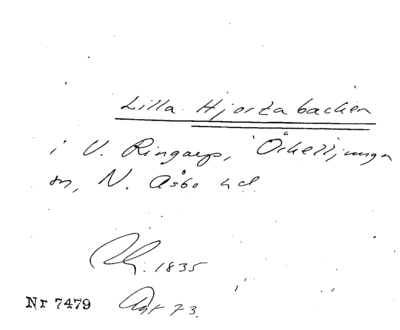 Lilla Hjortabacken
i V. Ringarp, Örkelljunga
sn, N. Åsbo hd.
1835
Nr 7479
Akt 73.